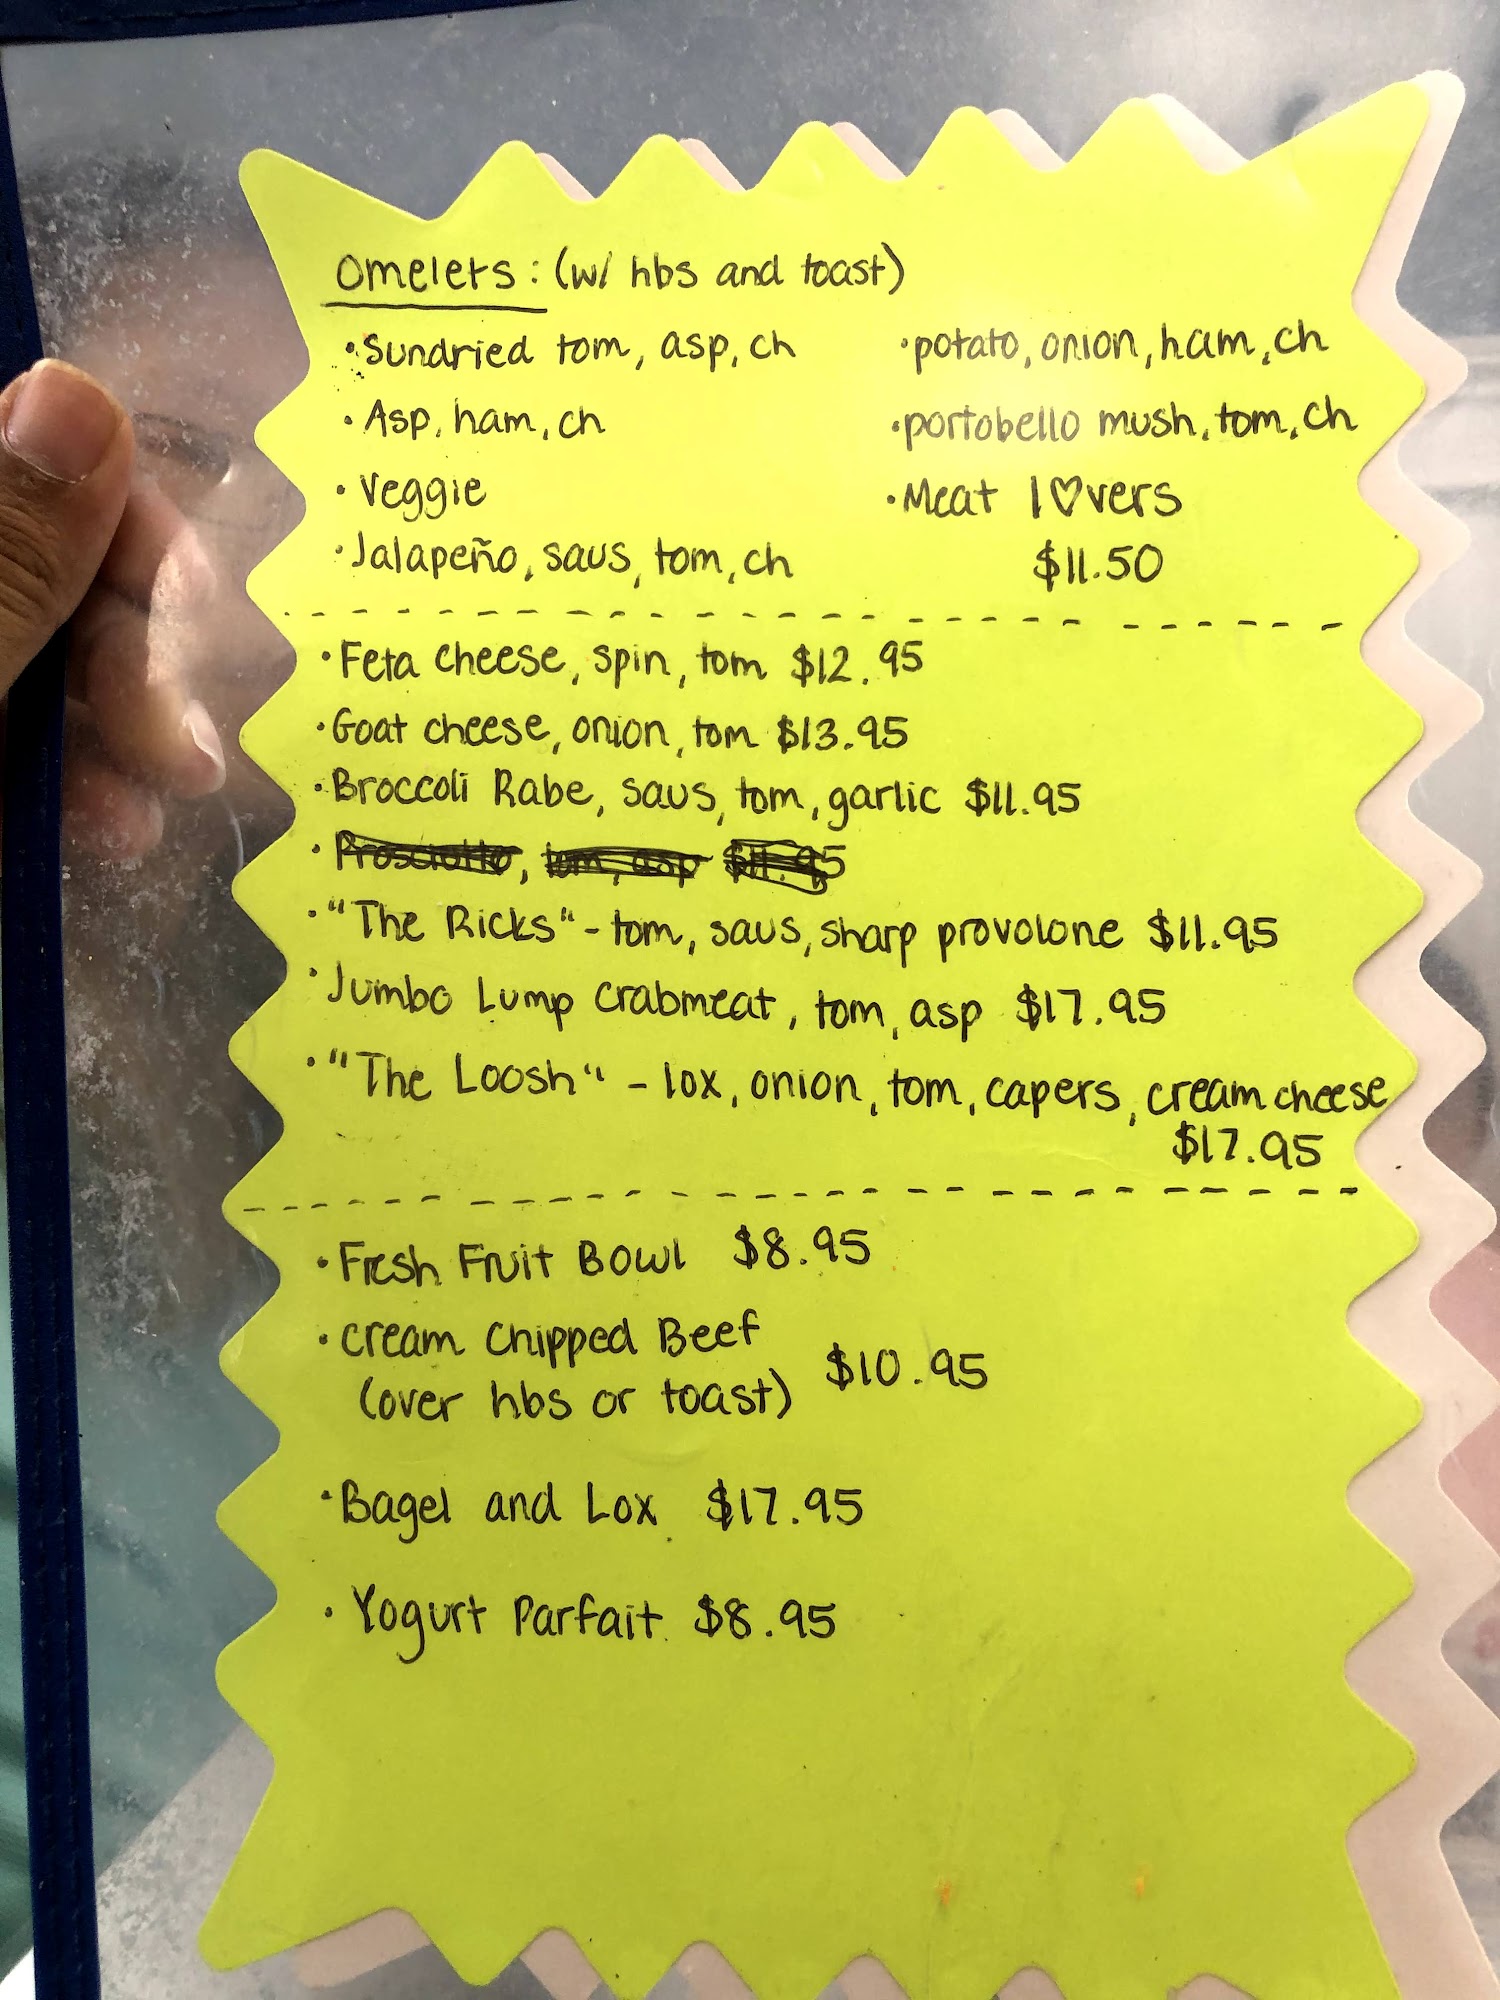 Omelets: (w/ hbs and toast)
• Sundried tom, asp, ch
• Asp, ham, ch
• Veggie
• Jalapeño, saus, tom, ch
• potato, onion, ham, ch
• portobello mush, tom, ch
• Meat l♡vers
$11.50
• Feta cheese, spin, tom $12.95
• Goat cheese, onion, tom $13.95
• Broccoli Rabe, saus, tom, garlic $11.95
• Prosciutto, tom, asp $11.95
• "The Ricks" - tom, saus, sharp provolone $11.95
• Jumbo Lump crabmeat, tom, asp $17.95
• "The Loosh" - lox, onion, tom, capers, cream cheese
$17.95
• Fresh Fruit Bowl $8.95
• cream Chipped Beef
(over hbs or toast) $10.95
• Bagel and Lox $17.95
• Yogurt Parfait $8.95